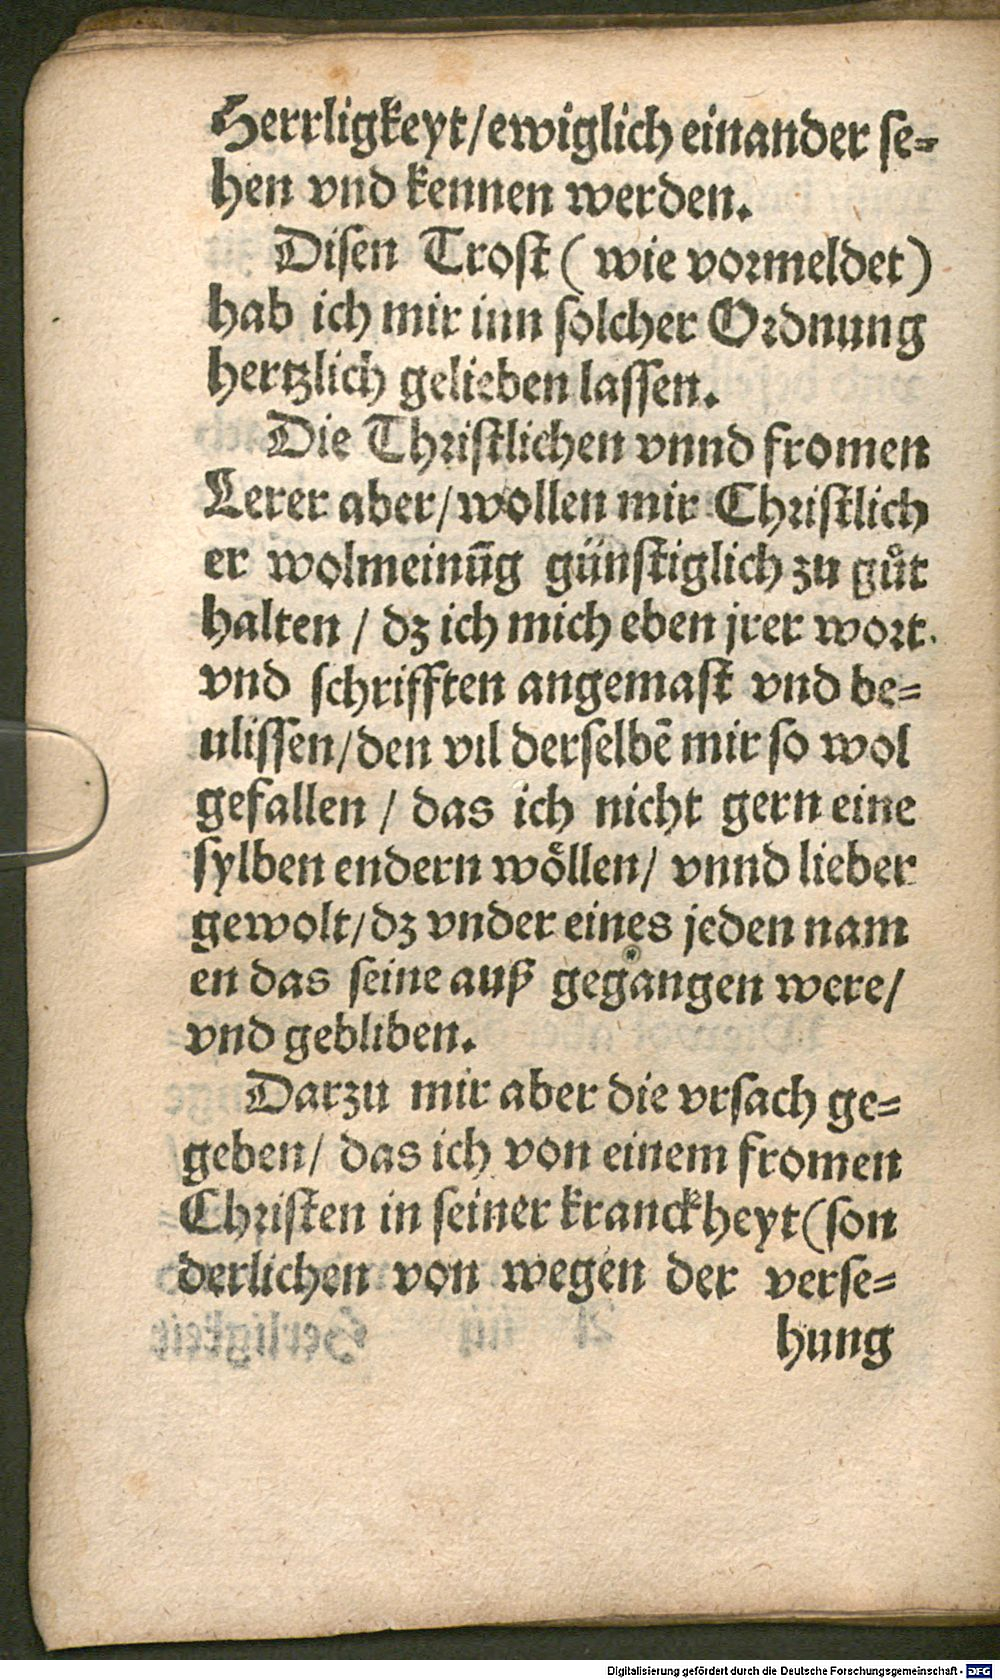 Herrligkeyt/ewiglich einander se=
hen vnd kennen werden.
Disen Trost ( wie vormeldet )
hab ich mir inn solcher Ordnung
hertzlich gelieben lassen.
Die Christlichen vnnd fromen
Lerer aber/wollen mir Christlich
er wolmeinūg günstiglich zu gůt
halten / dz ich mich eben jrer wort
vnd schrifften angemast vnd be=
ulissen/den vil derselbē mir so wol
gefallen / das ich nicht gern eine
sylben endern wöllen/ vnnd lieber
gewolt/dz vnder eines jeden nam
en das seine auß gegangen were/
vnd gebliben.
Darzu mir aber die vrsach ge=
geben/ das ich von einem fromen
Christen in seiner kranckheyt(son
derlichen von wegen der verse=
hung
Digitalisierung gefördert durch die Deutsche Forschungsgemeinschaft - DFG